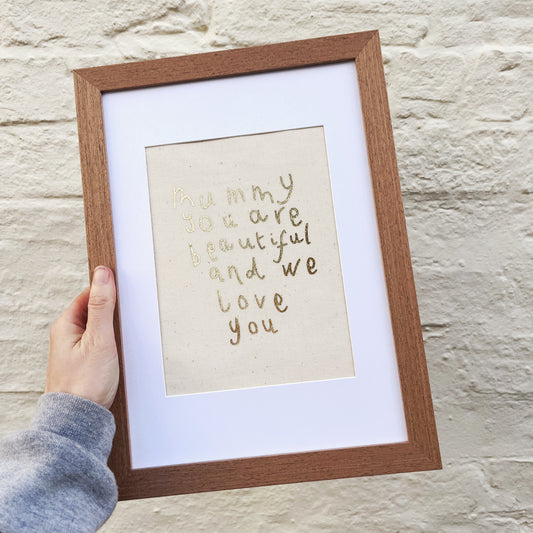 mummy
you are
beautiful
and we
love
you